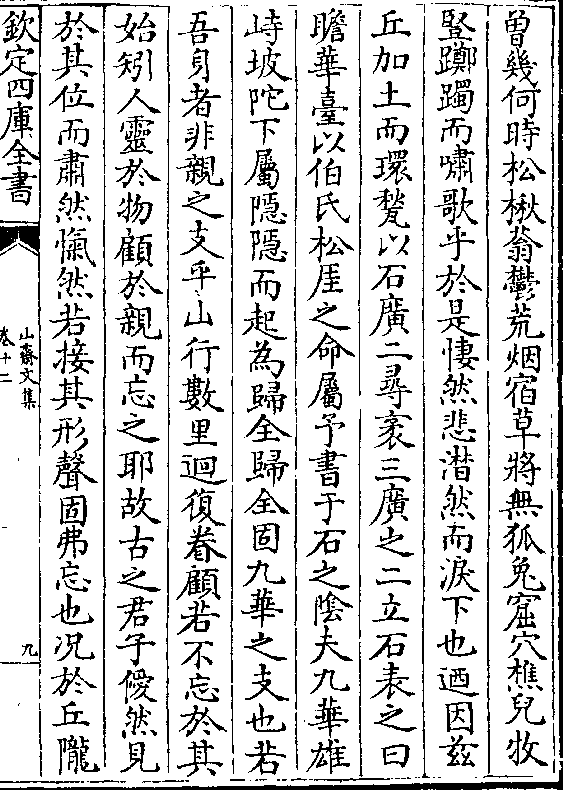 曽幾何時松楸蓊鬱荒烟宿草將無狐兔窟穴樵兒牧
豎躑躅而嘯歌乎於是悽然悲潸然而淚下也迺因茲
丘加土而環甃以石廣二尋袤三廣之二立石表之曰
瞻華臺以伯氏松厓之命屬予書于石之陰夫九華雄
峙坡陀下屬隠隠而起為歸全歸全固九華之支也若
吾身者非親之支乎山行數里迴復眷顧若不忘於其
始矧人靈於物顧於親而忘之耶故古之君子僾然見
於其位而肅然愾然若接其形聲固弗忘也况於丘隴
欽定四庫全書
山齋文集
卷十二
九